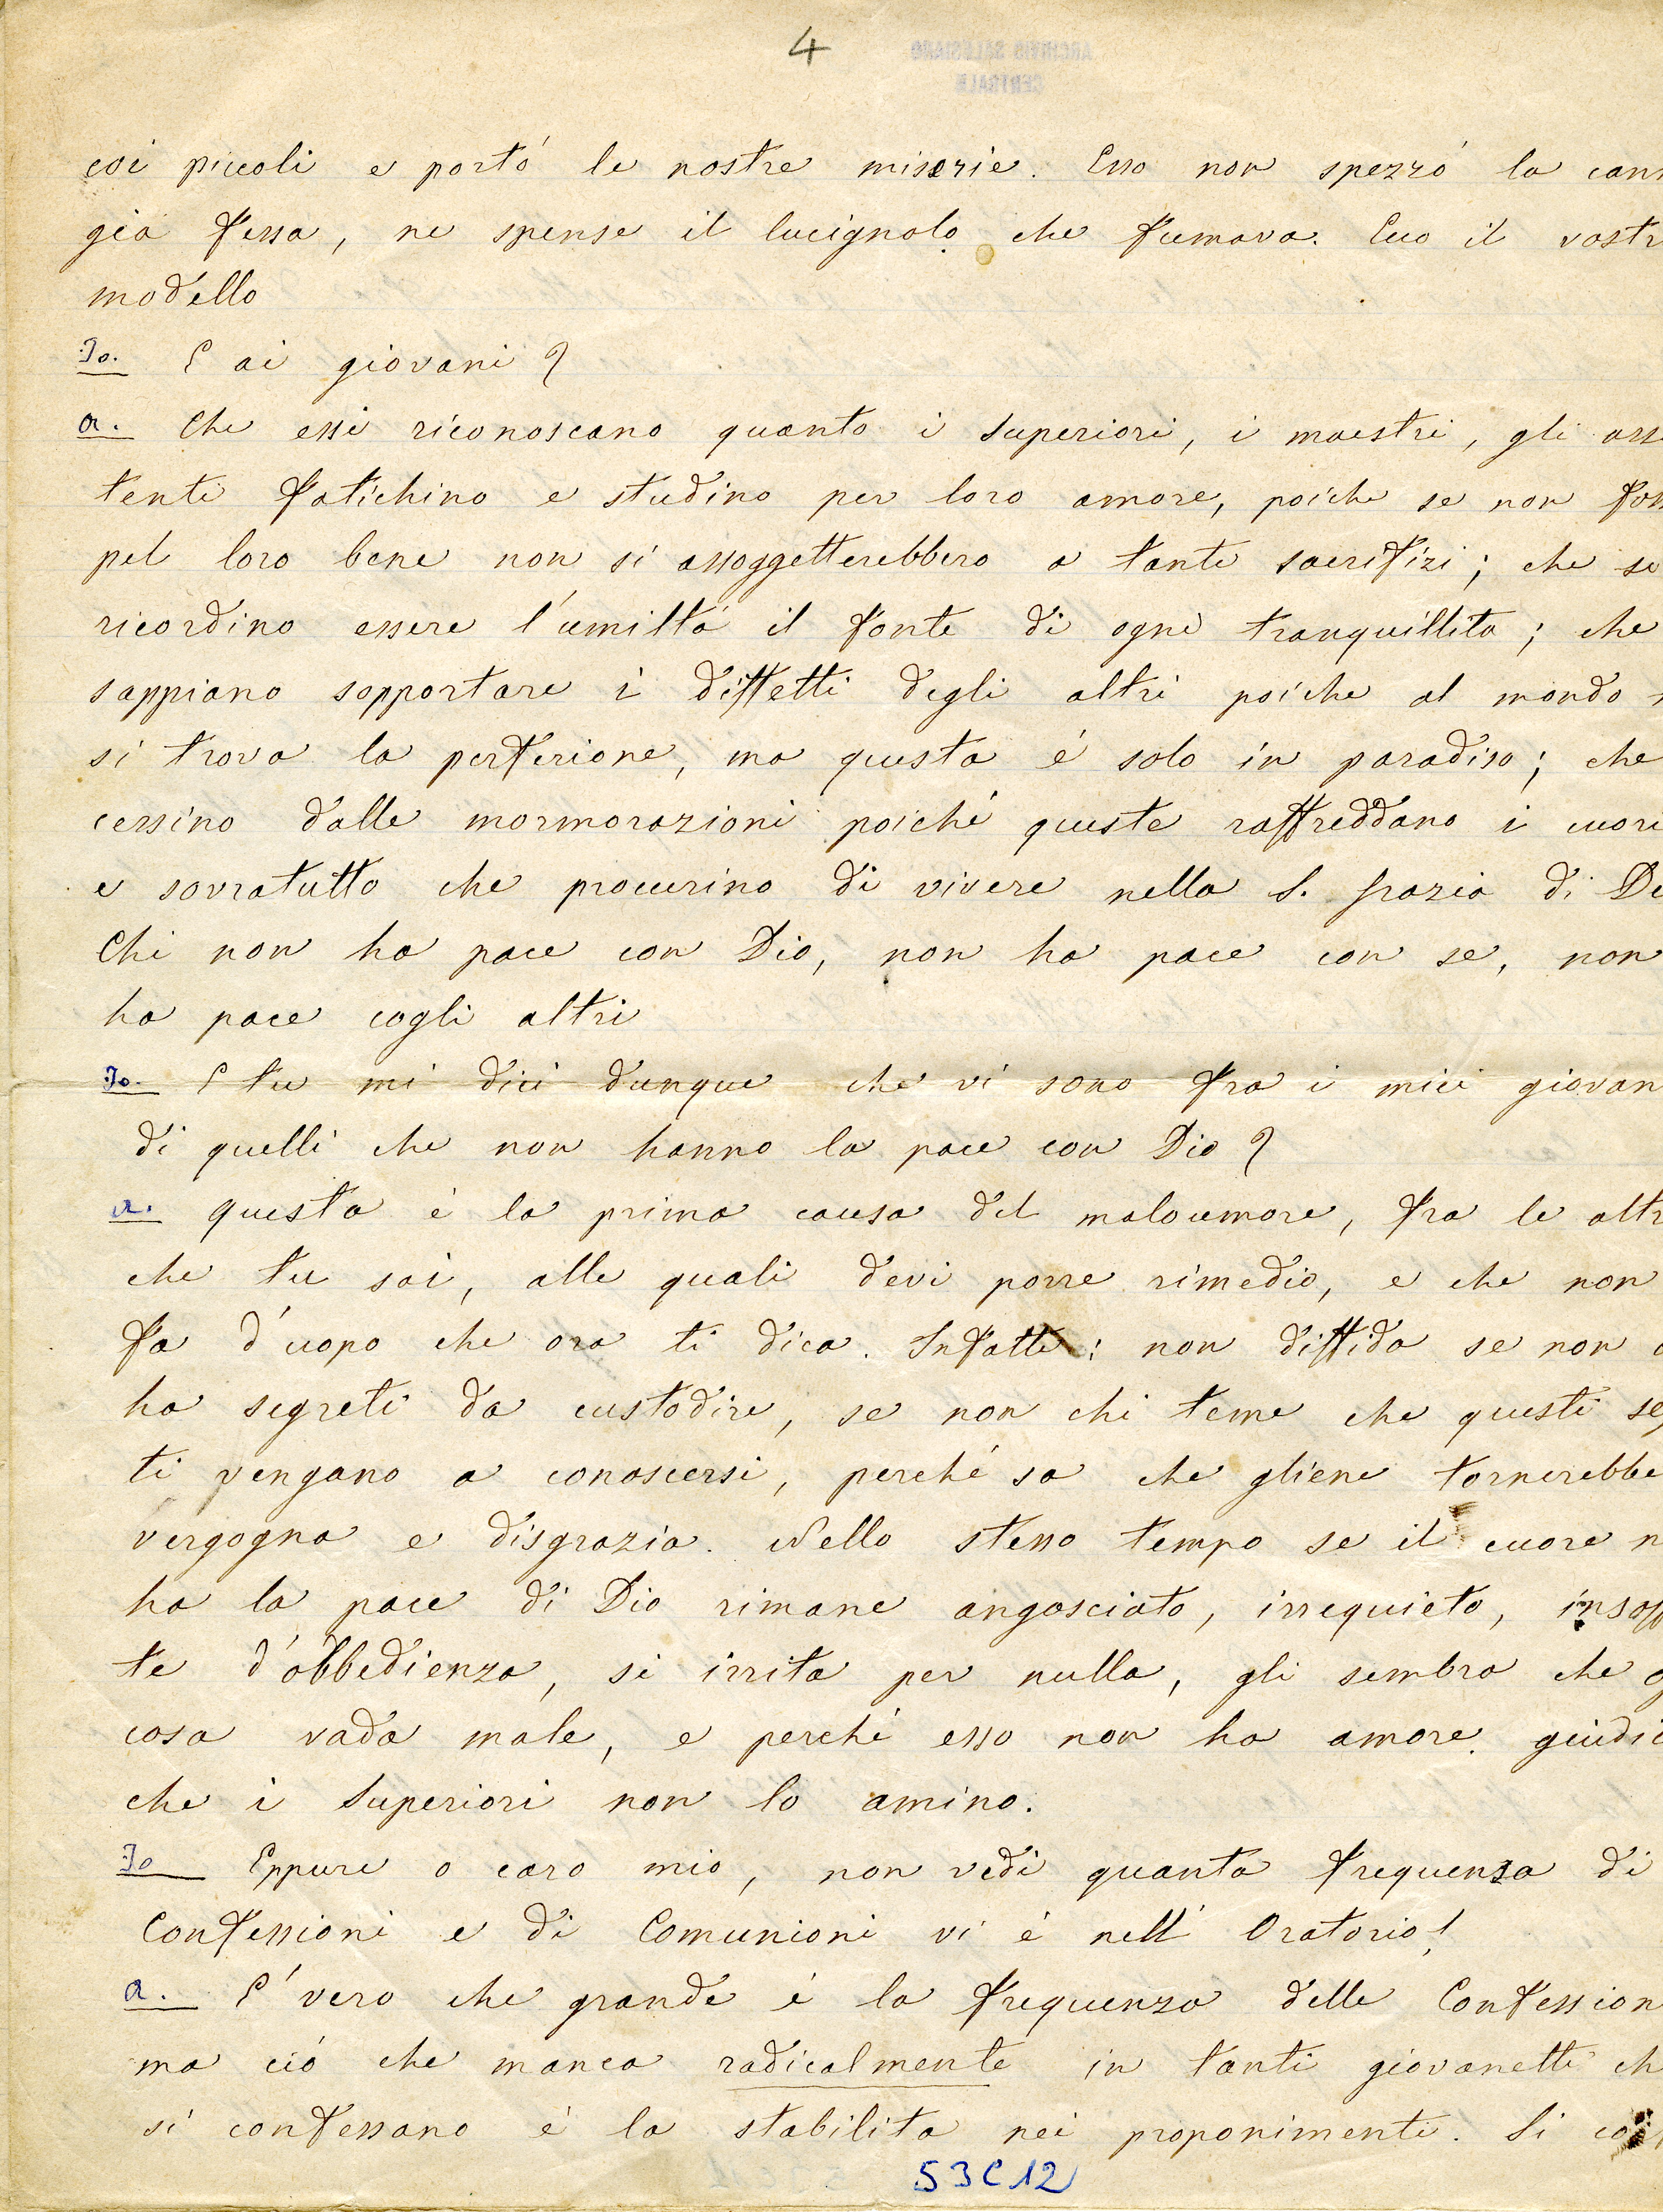 4
ARCHIVIO SALESIANO
CENTRALE
coi piccoli e portó le nostre miserie. Esso non spezzó la cann
gia fessa, ne spense il lucignolo che fumava. Ecco il vostr
modello
Io. E ai giovani?
a. Che essi riconoscano quanto i Superiori, i maestri, gli assi
tenti fatichino e studino per loro amore, poiche se non foss
pel loro bene non si assoggetterebbero a tanti sacrifizi; che se
ricordino essere l'umiltá il fonte di ogni tranquillita; che
sappiano sopportare i diffetti degli altri poiche al mondo n
si trova la perfezione, ma questa é solo in paradiso; che
cessino dalle mormorazioni poiché queste raffreddano i cuori
e sovratutto che procurino di vivere nella S. grazia di Di
Chi non ha pace con Dio, non ha pace con se, non
ha pace cogli altri
Io. E tu mi dici dunque che vi sono fra i miei giovan
di quelli che non hanno la pace con Dio?
a. Questa é la prima causa del maloumore, fra le altr
che tu sai, alle quali devi porre rimedio, e che non
fa d'uopo che ora ti dica. Infatti: non diffida se non c
ha segreti da custodire, se non chi teme che questi seg
ti vengano a conoscersi, perché sa che gliene tornerebbe
vergogna e disgrazia. Nello stesso tempo se il cuore n
ha la pace di Dio rimane angosciato, irrequieto, insoff
te d'obbedienza, si irrita per nulla, gli sembra che og
cosa vada male, e perché esso non ha amore, giudic
che i Superiori non lo amino.
Io Eppure o caro mio, non vedi quanta frequenza di
Confessioni e di Comunioni vi é nell' Oratorio!
a. E' vero che grande é la frequenza delle Confession
ma ció che manca radicalmente in tanti giovanetti ch
si confessano é la stabilita nei proponimenti. Si
53C12